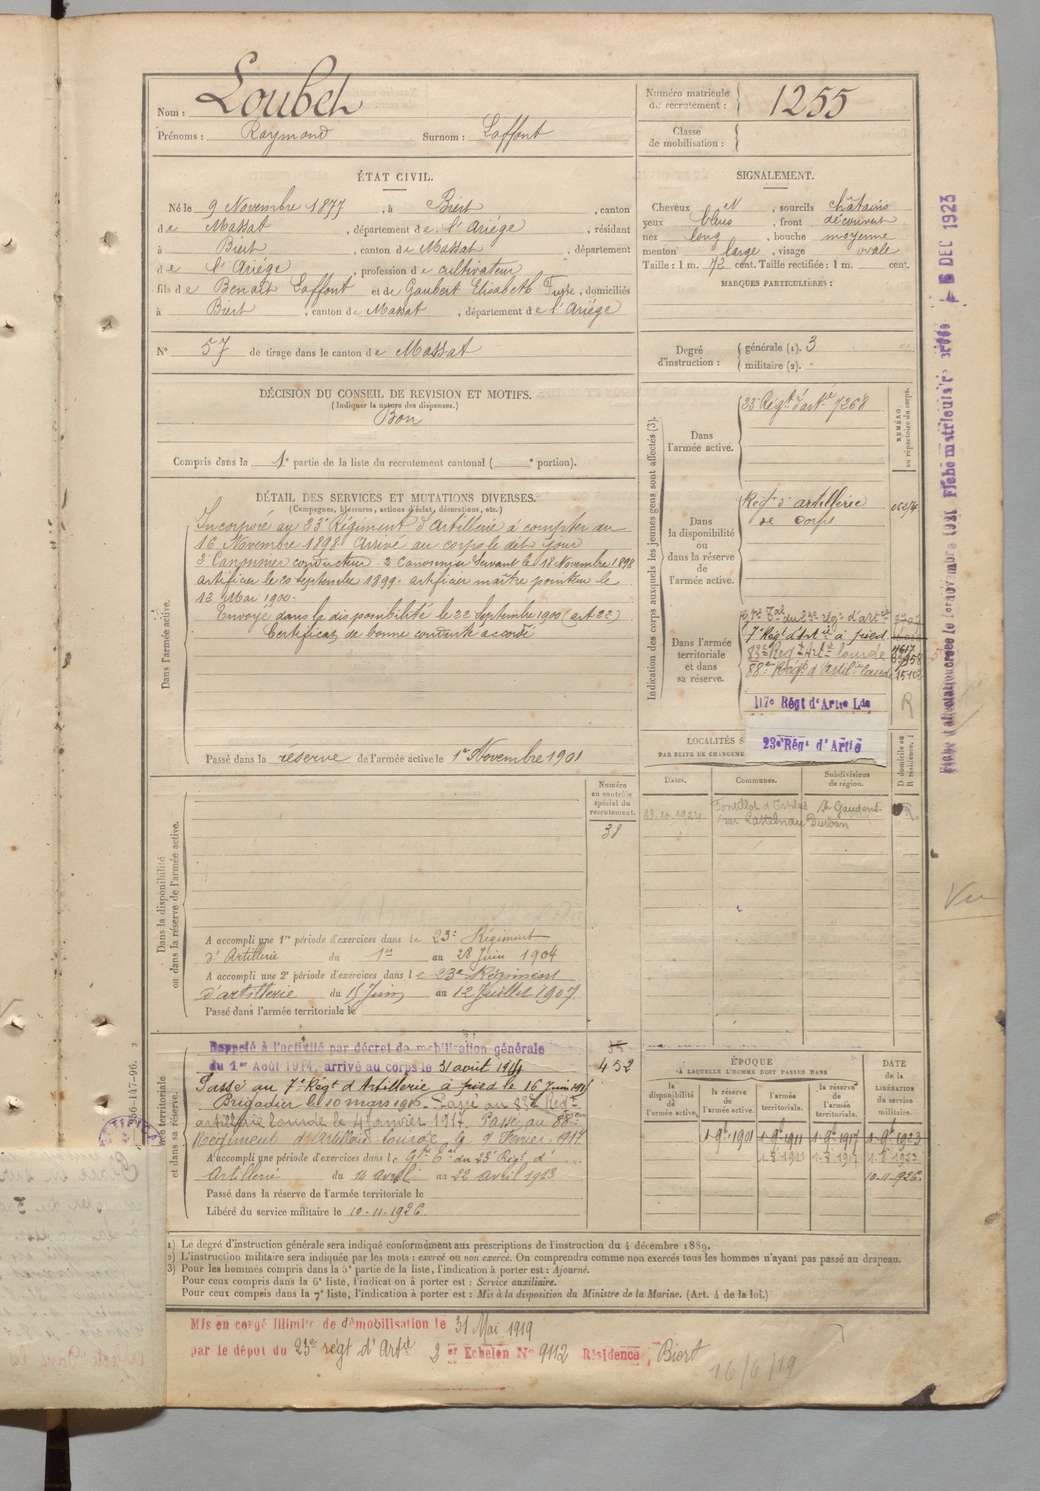 Nom : Loubet
Prénoms : Raymond Surnom : Laffont
Numéro matricule du recrutement : 1255
Classe de mobilisation :
ÉTAT CIVIL.
Né le 9 Novembre 1877, à Biert, canton
de Massat, département de l'Ariége, résidant
à Biert, canton de Massat, département
de l'Ariége, profession de cultivateur
fils de Benoît Laffont et de Gaubert Elisabeth, domiciliés
à Biert, canton de Massat, département de l'Ariége
N° 57 de tirage dans le canton de Massat
SIGNALEMENT.
Cheveux N, sourcils châtains
yeux bleus, front découvert
nez long, bouche moyenne
menton large, visage ovale
Taille : 1 m. 72 cent. Taille rectifiée : 1 m. cent.
MARQUES PARTICULIÈRES :
Degré d'instruction : générale (1). 3
militaire (2).
DÉCISION DU CONSEIL DE REVISION ET MOTIFS.
(Indiquer la nature des dispenses.)
Bon
Compris dans la 1e partie de la liste du recrutement cantonal ( e portion).
DÉTAIL DES SERVICES ET MUTATIONS DIVERSES.
(Campagnes, blessures, actions d'éclat, décorations, etc.)
Dans l'armée active.
Incorporé au 23e Régiment d'Artillerie à compter du
16 Novembre 1898. Arrivé au corps le dit jour
2e Canonnier conducteur. 2 Canonnier Servant le 18 Novembre 1898
artificier le 20 septembre 1899. artificier maître pointeur le
12 Mai 1900.
Envoyé dans la disponibilité le 22 septembre 1900 (art 22)
Certificat de bonne conduite accordé
Passé dans la réserve de l'armée active le 1er Novembre 1901
Indication des corps auxquels les jeunes gens sont affectés (3).
NUMÉRO au répertoire du corps.
Dans l'armée active.
23e Régt d'artie 7268
Dans la disponibilité ou dans la réserve de l'armée active.
Regt d'artillerie
de corps
Dans l'armée territoriale et dans sa réserve.
du 23e régt d'artie
7e Régt d'Artie à pied
83e Regt Artie lourde
88e Régt d'Artillie lourde
117e Régt d'Artie Lde
23e Régt d'Artie
R
LOCALITÉS S
PAR SUITE DE CHANGEME
D domicile ou R résidence.
Dates. Communes. Subdivisions de région.
St Gaudens
par Castelnau Durban
R
Dans la disponibilité ou dans la réserve de l'armée active.
Numéro au contrôle spécial du recrutement.
38
A accompli une 1re période d'exercices dans le 23e Régiment
d'Artillerie du 1er au 28 Juin 1904
A accompli une 2e période d'exercices dans le 23e Régiment
d'artillerie du 15 Juin au 12 Juillet 1907
Passé dans l'armée territoriale le
Rappelé à l'activité par décret de mobilisation générale
du 1er Août 1914, arrivé au corps le 31 août 1914
432
Passé au 7e Régt d'Artillerie à pied le 16 Juin
Brigadier le 10 mars 1916. Passé au 83e Régt
artillerie lourde le 4 Janvier 1917. Passé au 88e
Regiment d'Artillerie lourde le 9 Fevrier 1917
A accompli une période d'exercices dans le du 23e Régt d'
Artillerie du 14 avril au 22 avril 1913
Passé dans la réserve de l'armée territoriale le
Libéré du service militaire le 10-11-1926.
ÉPOQUE
A LAQUELLE L'HOMME DOIT PASSER DANS
la disponibilité de l'armée active.
la réserve de l'armée active.
l'armée territoriale.
la réserve de l'armée territoriale.
DATE de la LIBÉRATION du service militaire.
1-9bre 1901 1-9bre 1911 1-9bre 1917 1-9bre 1923
10-11-1926
1) Le degré d'instruction générale sera indiqué conformément aux prescriptions de l'instruction du 4 décembre 1889.
2) L'instruction militaire sera indiquée par les mots : exercé ou non exercé. On comprendra comme non exercés tous les hommes n'ayant pas passé au drapeau.
3) Pour les hommes compris dans la 5e partie de la liste, l'indication à porter est : Ajourné.
Pour ceux compris dans la 6e liste, l'indication à porter est : Service auxiliaire.
Pour ceux compris dans la 7e liste, l'indication à porter est : Mis à la disposition du Ministre de la Marine. (Art. 4 de la loi.)
Mis en congé illimité de démobilisation le 31 Mai 1919
par le dépôt du 23e régt d'Artie 2 er Echelon N° 9112 Résidence, Biert
16/6/19
DEC 1923
Vu